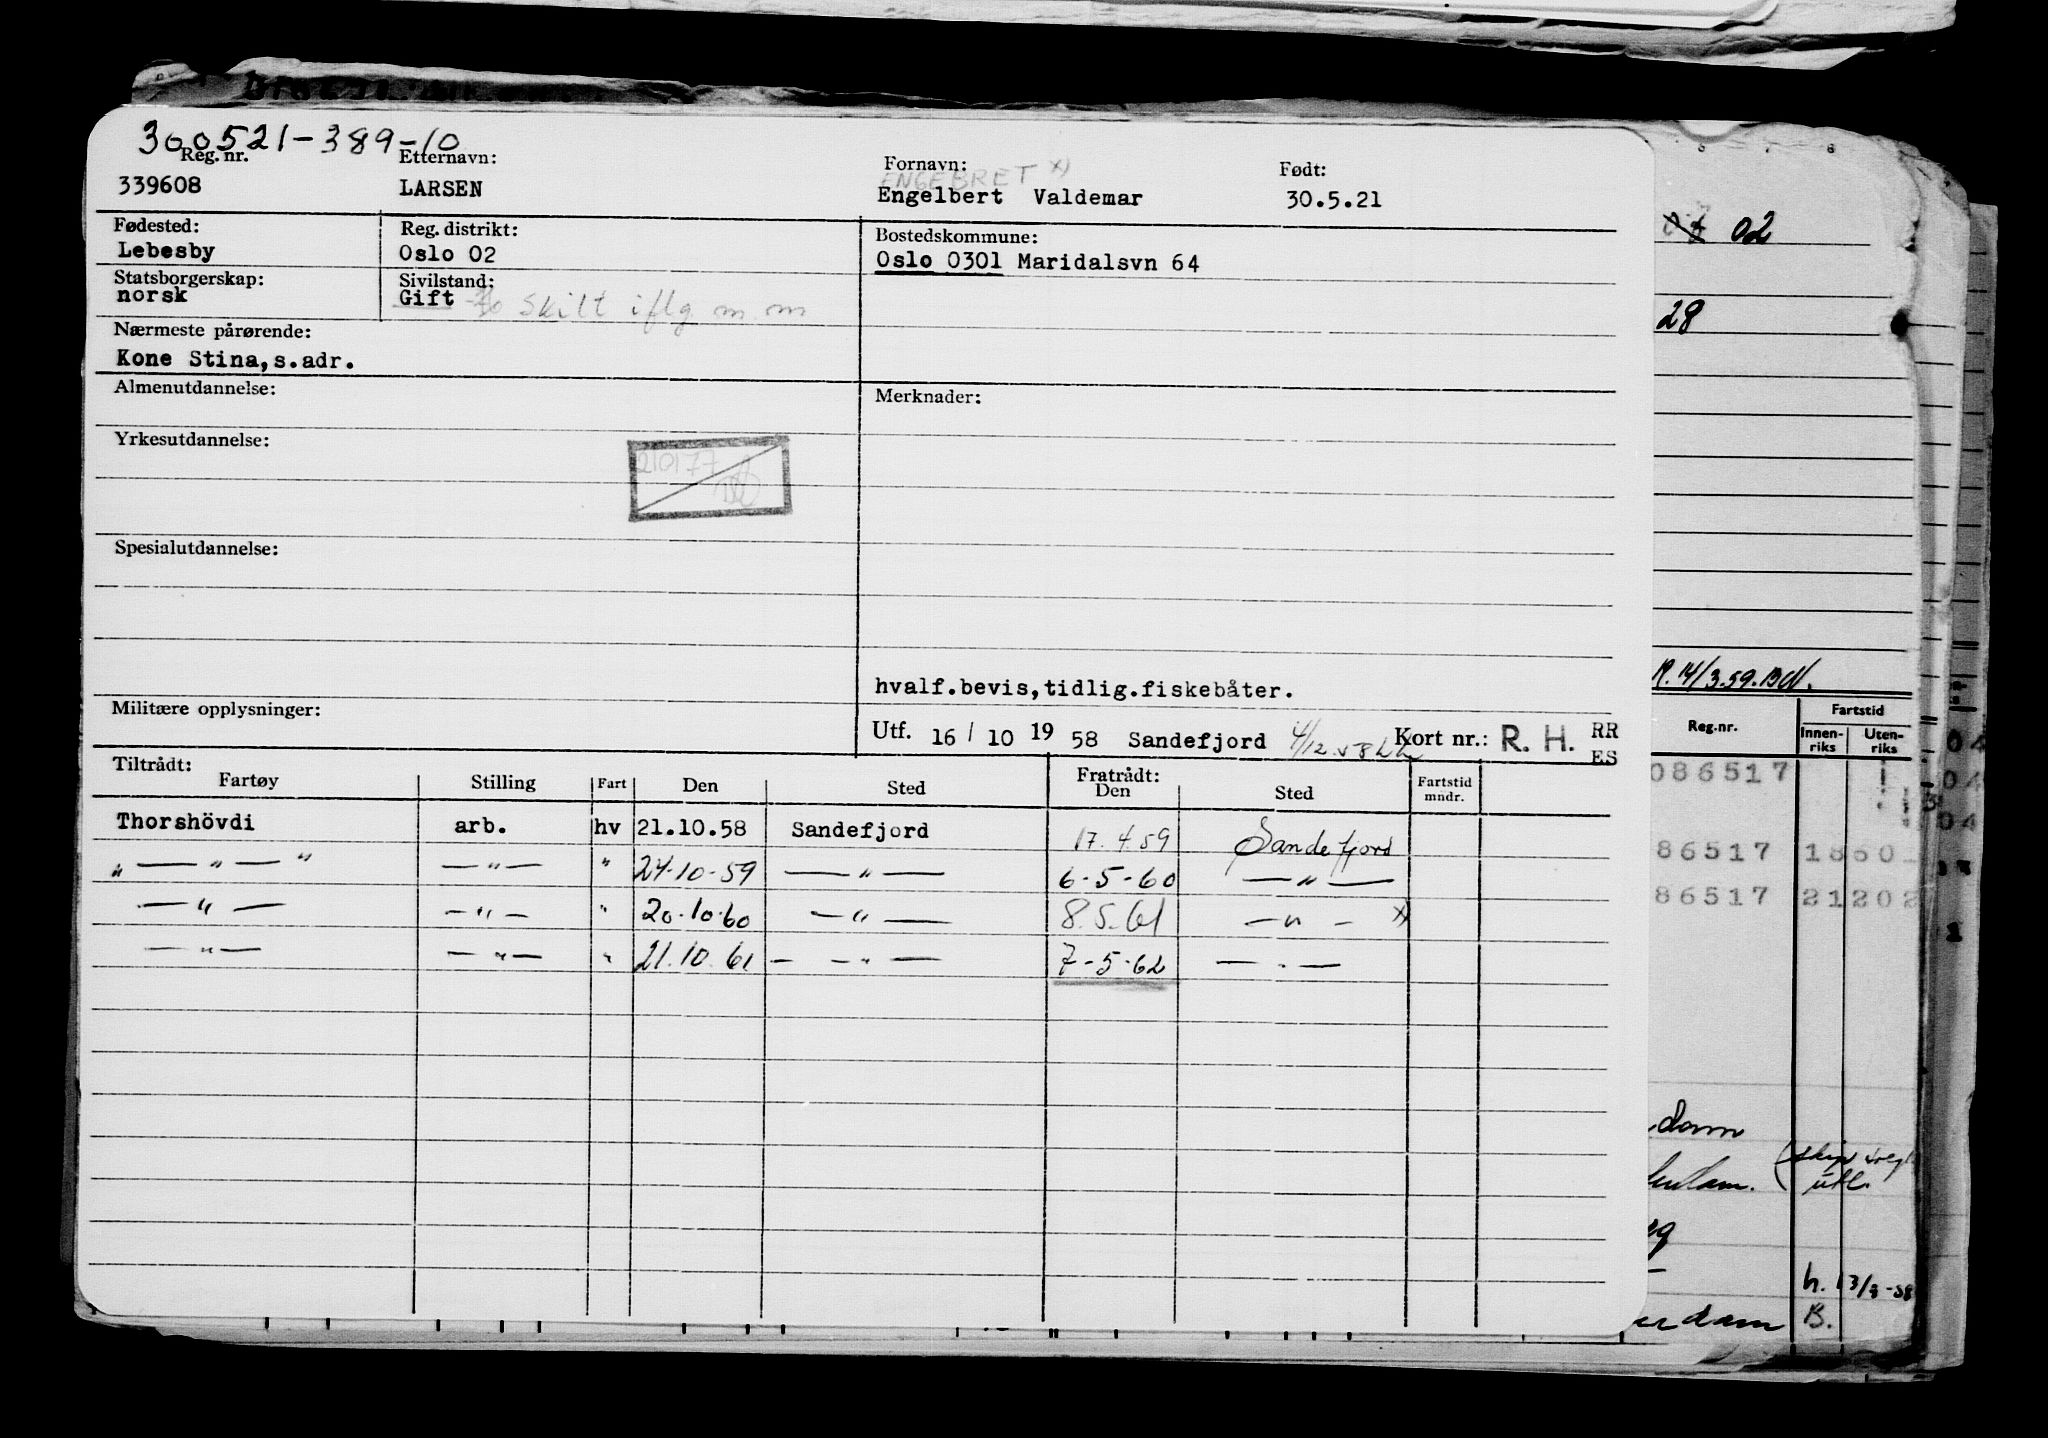 300521-389-10
Reg. nr. Etternavn: Fornavn: Født:
ENGEBRET x)
339608 LARSEN Engelbert Valdemar 30.5.21
Fødested: Reg. distrikt: Bostedskommune:
Lebesby Oslo 02 Oslo 0301 Maridalsvn 64
Statsborgerskap: Sivilstand:
norsk Gift skilt iflg m.m
Nærmeste pårørende:
Kone Stina, s.adr.
Almenutdannelse: Merknader:
Yrkesutdannelse:
210177
Spesialutdannelse:
hvalf.bevis, tidlig.fiskebåter.
Militære opplysninger:
Utf. 16 / 10 19 58 Sandefjord 4/12.58 Kort nr.: R. H. RR
ES
Tiltrådt: Fratrådt:
Fartøy Stilling Fart Den Sted Den Sted Fartstid mndr.
Thorshövdi arb. hv 21.10.58 Sandefjord 17.4.59 Sandefjord
" — " — " — " — " 24.10-59 — " — 6-5-60 — " —
— " — — " — " 20.10.60 — " — 8.5.61 — " — x)
— " — — " — " 21.10.61 — — " — 7-5-62 — " —
02
28
R. 14/3.59.
Reg.nr. Fartstid
Innen-riks Uten-riks
086517
86517 1860
86517 21202
dam
utl.
h. 13/8-58
erdam B.